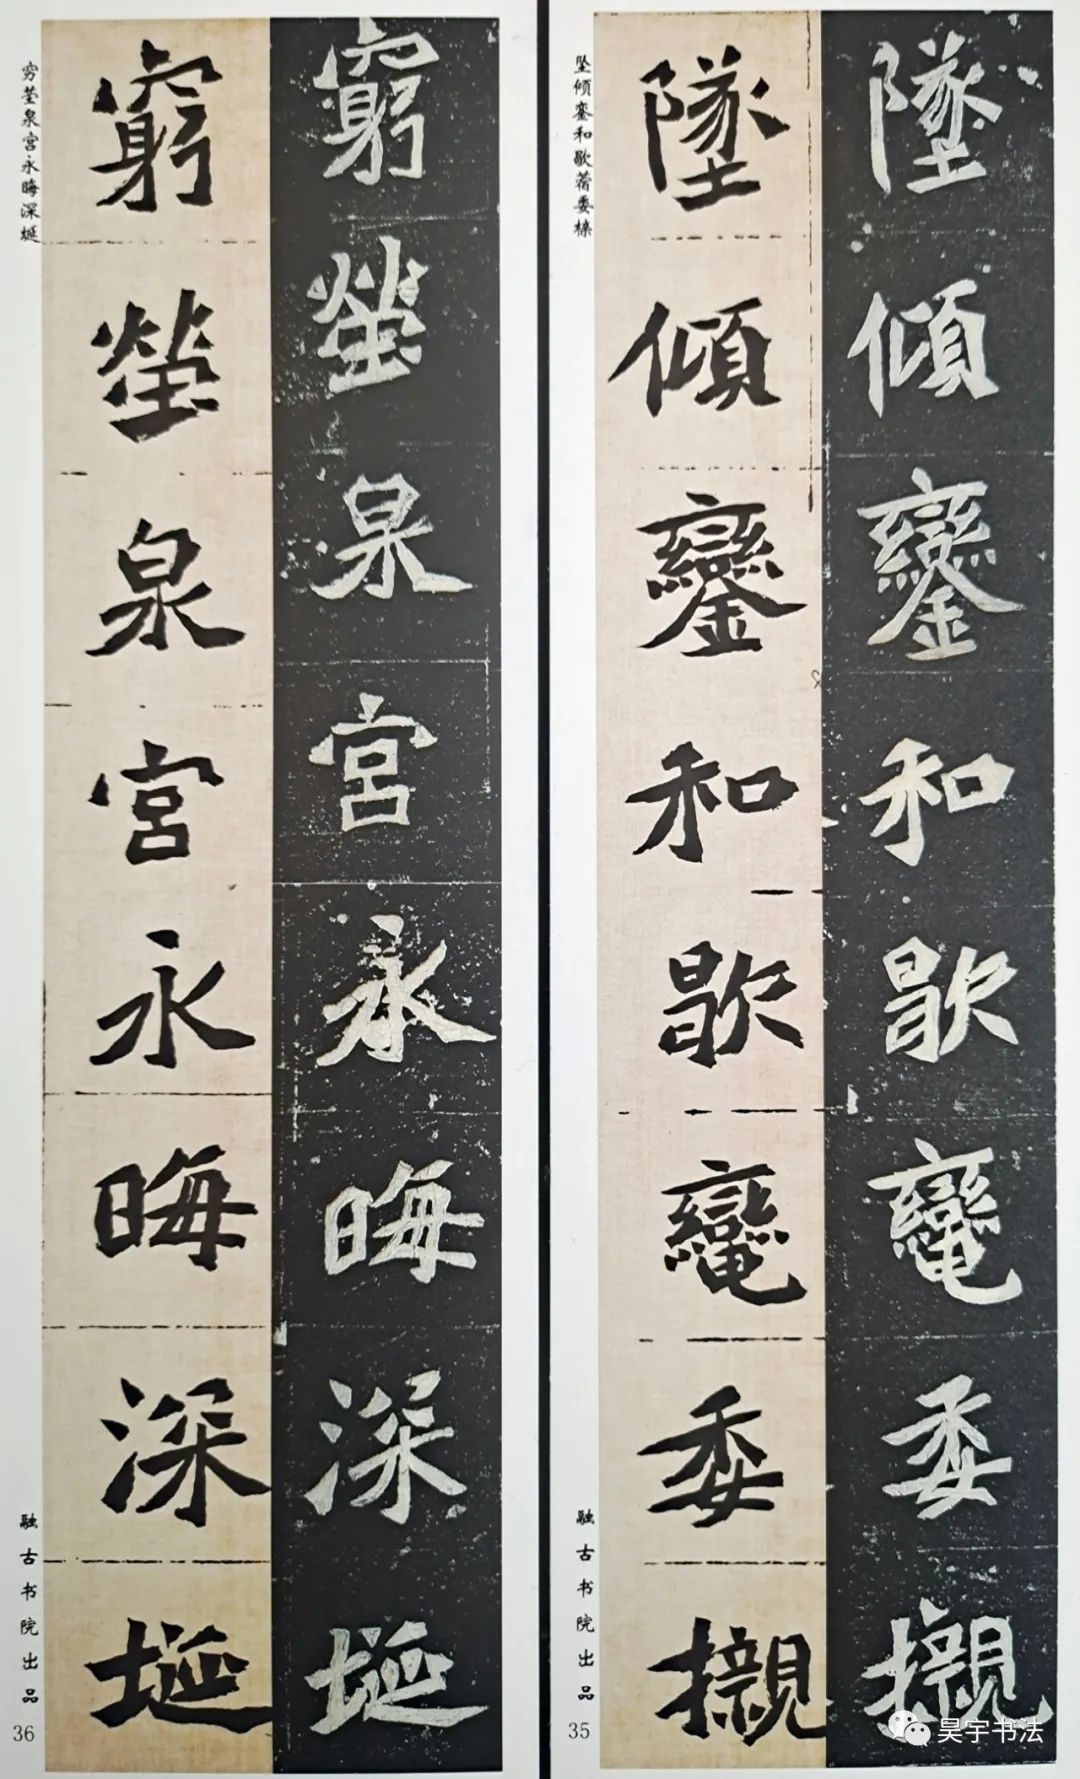 墜傾鑾和歇委櫬
墜傾鑾和歇委櫬
坠倾銮和歇委榇
融古书院出品
35
窮塋泉宮永晦深埏
窮塋泉宮永晦深埏
穷茔泉宫永晦深埏
融古书院出品
36
昊宇书法